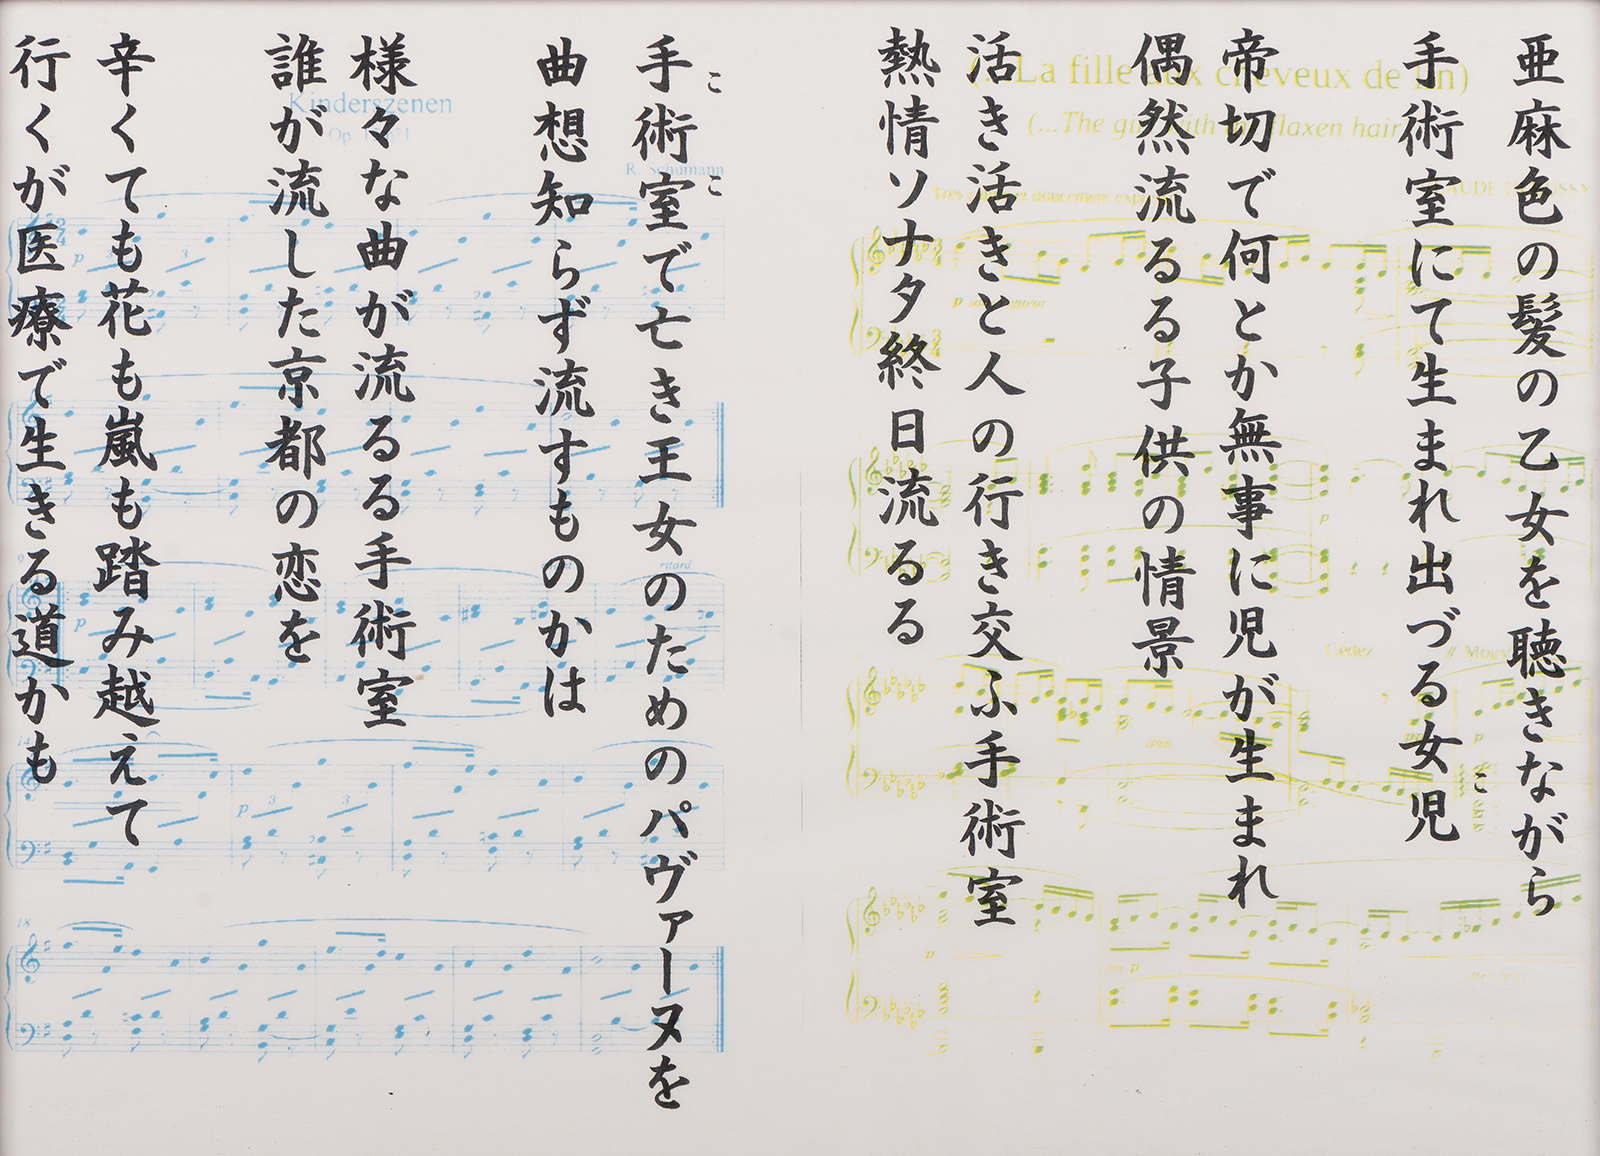 亜麻色の髪の乙女を聴きながら
手術室にて生まれ出づる女児
こ
帝切で何とか無事に児が生まれ
偶然流るる子供の情景
活き活きと人の行き交ふ手術室
熱情ソナタ終日流るる
手術室で亡き王女のためのパヴァーヌを
ここ
曲想知らず流すものかは
様々な曲が流るる手術室
誰が流した京都の恋を
辛くても花も嵐も踏み越えて
行くが医療で生きる道かも
(...La fille aux cheveux de lin)
(...The girl with the flaxen hair)
Kinderszenen
R. Schumann